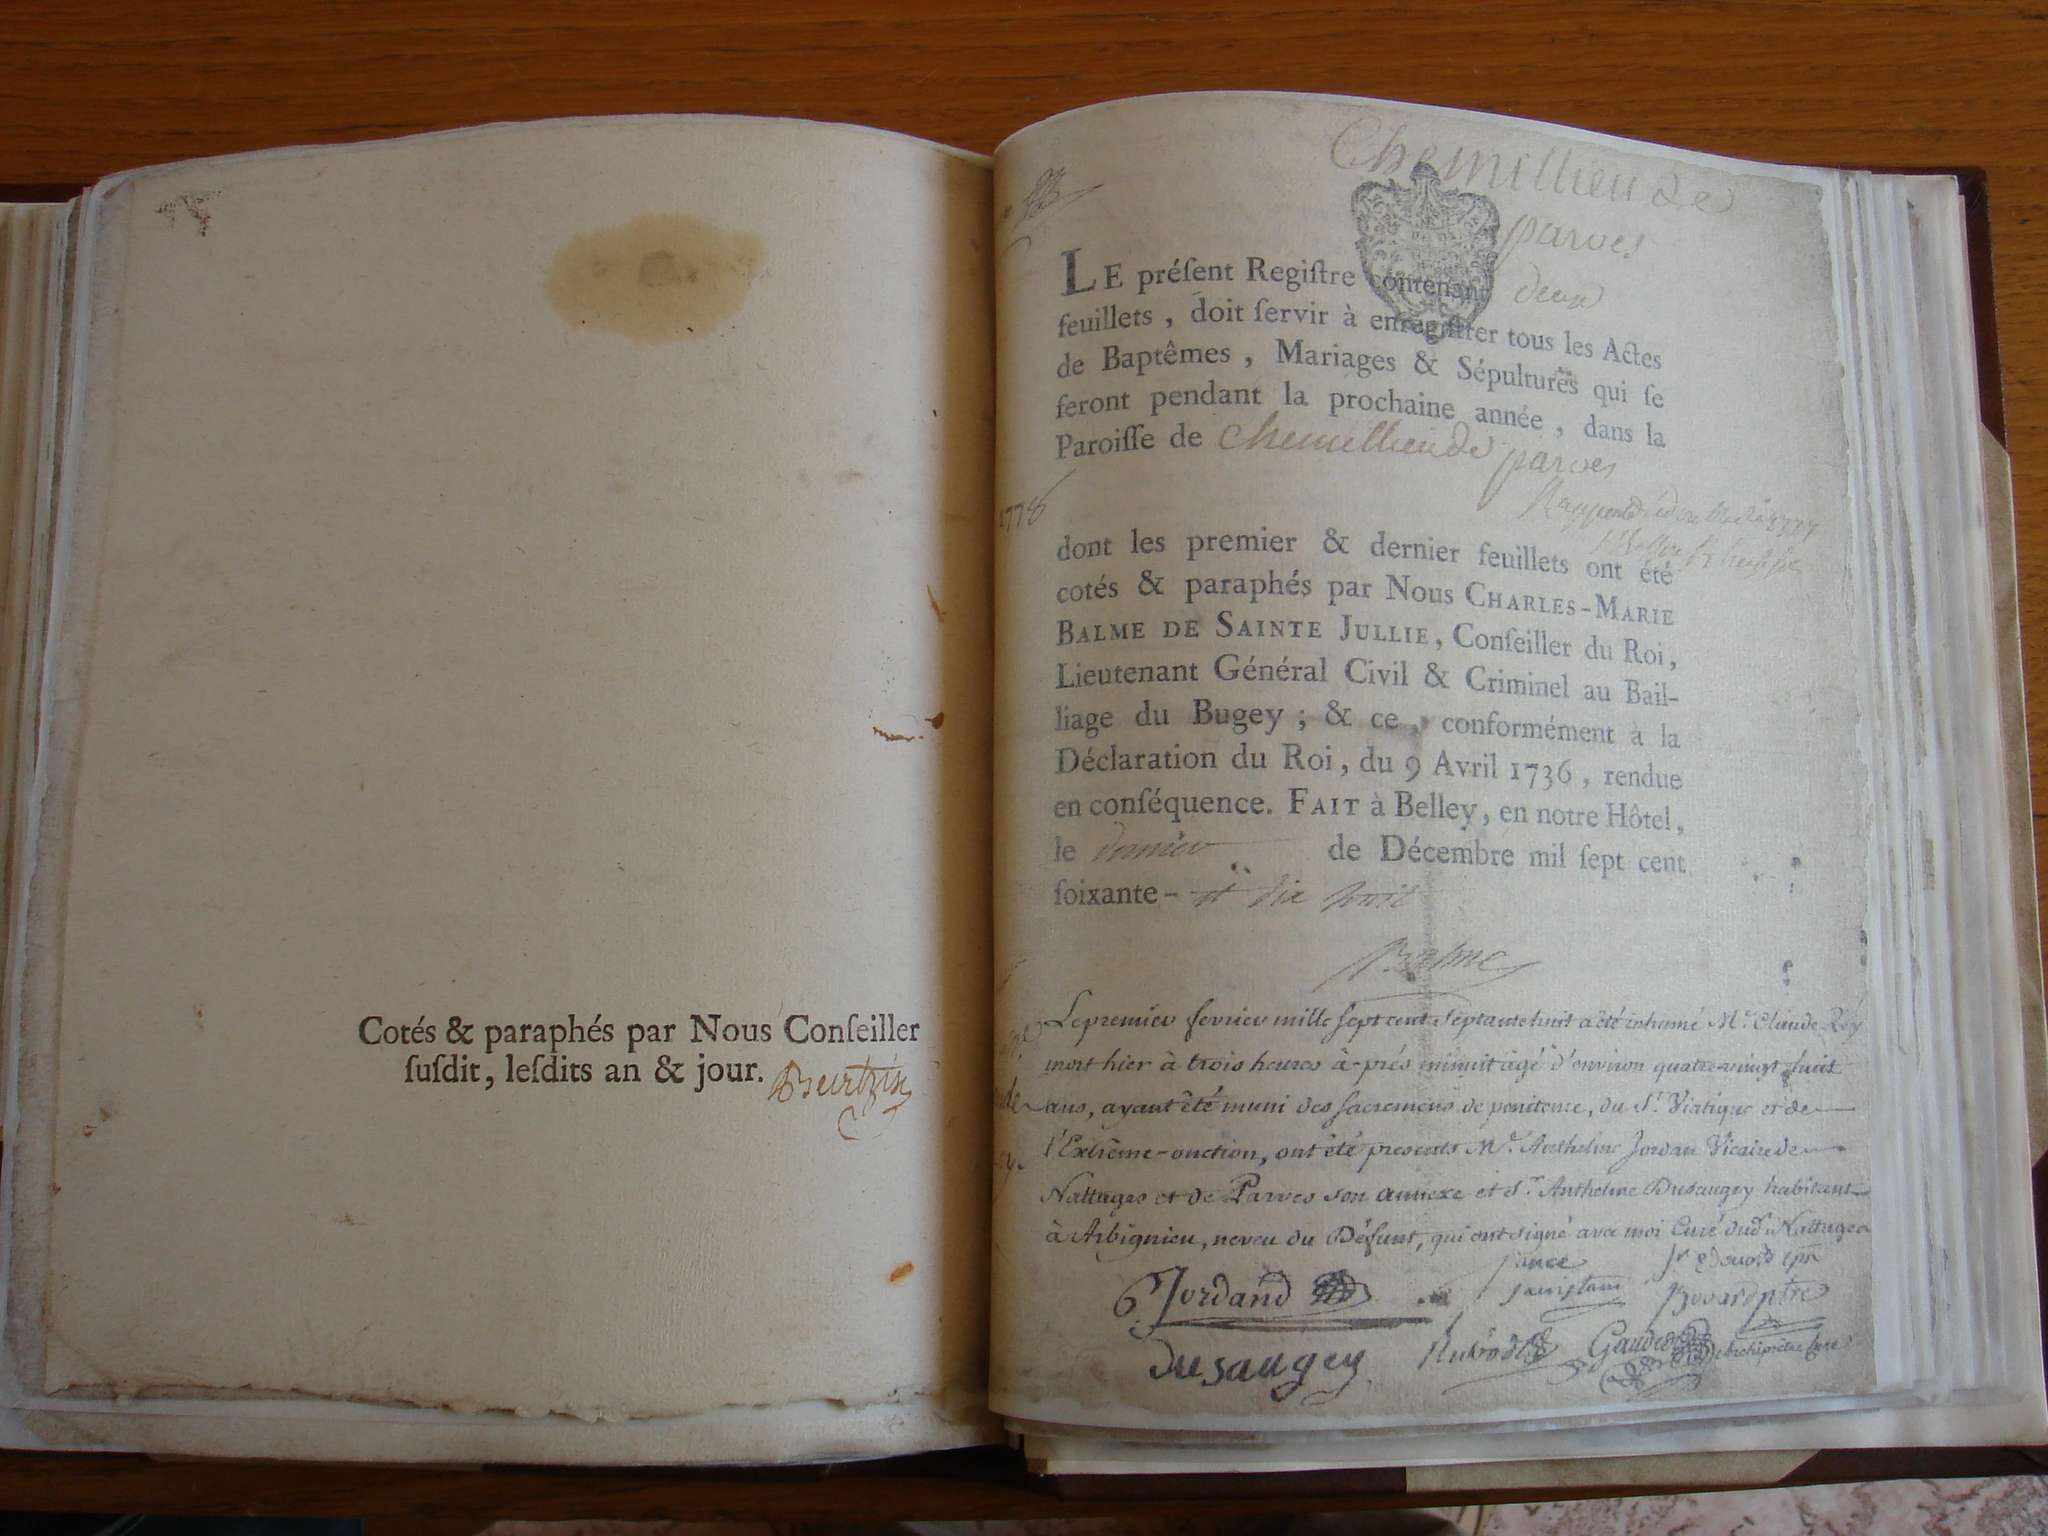 Cotés & paraphés par Nous Conſeiller
ſuſdit, leſdits an & jour.
Chemillieu de
parves
LE préſent Regiſtre contenant deux
feuillets, doit ſervir à enregiſtrer tous les Actes
de Baptêmes, Mariages & Sépultures qui ſe
feront pendant la prochaine année, dans la
Paroiſſe de Chemillieu de
parves
1778
dont les premier & dernier feuillets ont été
cotés & paraphés par Nous CHARLES-MARIE
BALME DE SAINTE JULLIE, Conſeiller du Roi,
Lieutenant Général Civil & Criminel au Bail-
liage du Bugey; & ce, conformément à la
Déclaration du Roi, du 9 Avril 1736, rendue
en conſéquence. FAIT à Belley, en notre Hôtel,
le dernier de Décembre mil ſept cent
ſoixante-et dix
Balme
Le premier fevrier mille sept cent septante huit a été inhumé Mr. Claude Rey
mort hier à trois heures à-prés minuit agé d'environ quatre-vingt huit
ans, ayant été muni des sacremens de penitence, du St. Viatique et de
l'Extrême-onction, ont été presents Mr. Anthelme Jordan Vicaire de
Nattages et de Parves son annexe et Sr. Anthelme Dusaugey habitant
à Arbignieu, neveu du Défunt, qui ont signé avec moi Curé dud. Nattages
Jordand
Dusaugey
Archiprêtre Curé